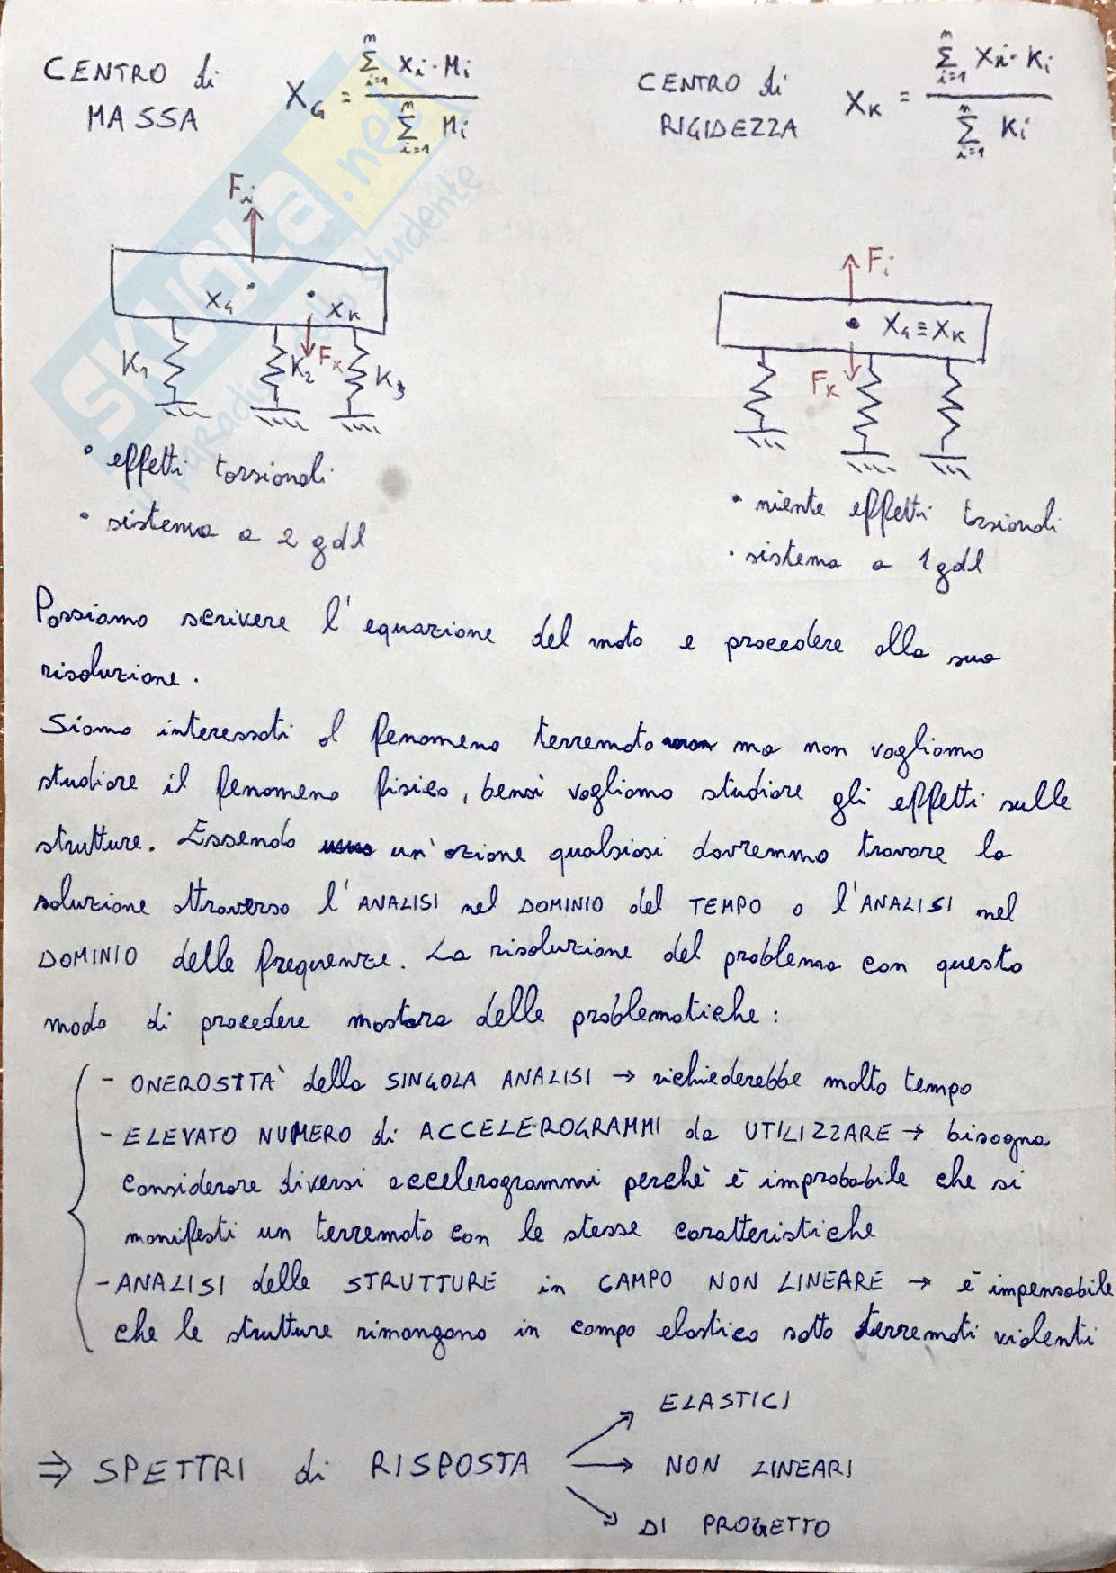 CENTRO di
MASSA
X_G = \frac{\sum_{i=1}^{n} X_i \cdot M_i}{\sum_{i=1}^{n} M_i}
CENTRO di
RIGIDEZZA
X_K = \frac{\sum_{i=1}^{n} X_i \cdot K_i}{\sum_{i=1}^{n} K_i}
SKUOLA.net
F_i
X_G
X_K
K_1
K_2
F_K
K_3
F_i
X_G ≡ X_K
F_K
• effetti torsionali
• sistema a 2 gdl
• niente effetti torsionali
• sistema a 1 gdl
Possiamo scrivere l'equazione del moto e procedere alla sua
risoluzione.
Siamo interessati al fenomeno terremoto ma non vogliamo
studiare il fenomeno fisico, bensì vogliamo studiare gli effetti sulle
strutture. Essendo un'azione qualsiasi dovremmo trovare la
soluzione attraverso l'ANALISI nel DOMINIO del TEMPO o l'ANALISI nel
DOMINIO delle frequenze. La risoluzione del problema con questo
modo di procedere mostra delle problematiche:
- ONEROSITÀ della SINGOLA ANALISI → richiederebbe molto tempo
- ELEVATO NUMERO di ACCELEROGRAMMI da UTILIZZARE → bisogna
considerare diversi accelerogrammi perchè è improbabile che si
manifesti un terremoto con le stesse caratteristiche
- ANALISI delle STRUTTURE in CAMPO NON LINEARE → è impensabile
che le strutture rimangano in campo elastico sotto terremoti violenti
ELASTICI
⇒ SPETTRI di RISPOSTA → NON LINEARI
DI PROGETTO